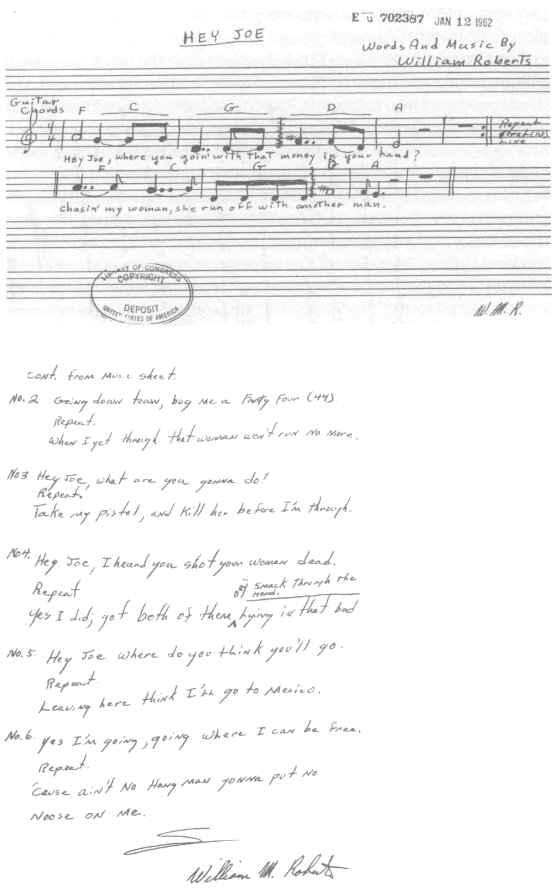 HEY JOE
E u 702387 JAN 12 1962
Words And Music By
William Roberts
Guitar
Chords F C G D A
Repeat
Hey Joe, where you goin' with that money in your hand?
F C G D A
Chasin' my woman, she run off with another man.
LIBRARY OF CONGRESS
COPYRIGHT
DEPOSIT
UNITED STATES OF AMERICA
W. M. R.
cont. from Music sheet.
No. 2 Going down town, buy me a Forty Four (44)
Repeat.
When I get through that woman won't run no more.
No 3 Hey Joe, what are you gonna do!
Repeat.
Take my pistol, and kill her before I'm through.
No 4. Hey Joe, I heard you shot your woman dead.
Repeat
or Smack Through the
Head.
Yes I did, got both of them lying in that bed
No. 5 Hey Joe where do you think you'll go.
Repeat
Leaving here think I'll go to Mexico.
No. 6 Yes I'm going, going where I can be free.
Repeat.
'Cause ain't No Hang man gonna put no
Noose on Me.
William M. Roberts